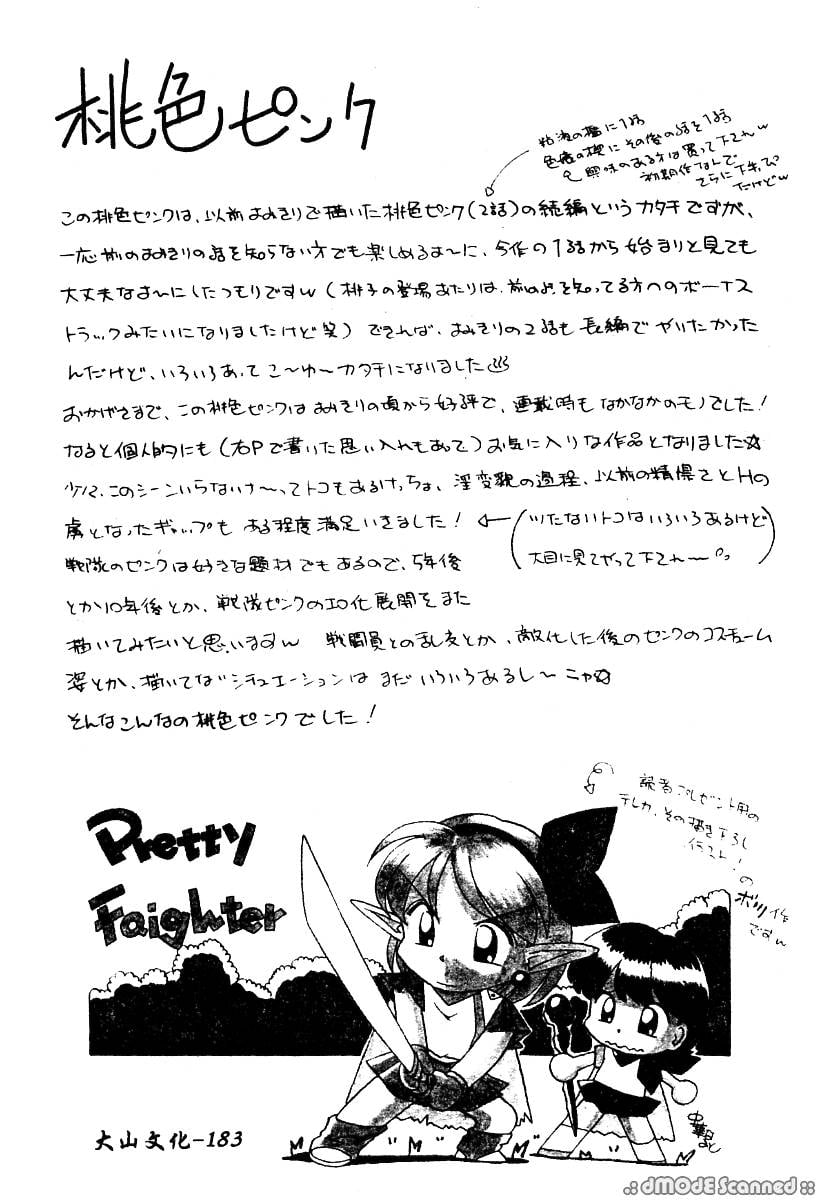 桃色ピンク
粘液の檻に1話
色癒の楔にその後の話を1話
興味のある方は買って下されw
初期作なんで
さらに下手っぴ
だけどw
この桃色ピンクは、以前よみきりで描いた桃色ピンク(2話)の続編というカタチですが、
一応前のよみきりの話を知らない方でも楽しめるよ〜に、今作の1話から始まりと見ても
大丈夫なよ〜にしたつもりですw(桃子の登場あたりは、前のよを知ってる方へのボーナス
トラックみたいになりましたけど笑)できれば、よみきりの2話も長編でやりたかった
んだけど、いろいろあってこ〜ゆ〜カタチになりました
おかげさまで、この桃色ピンクはよみきりの頃から好評で、連載時もなかなかのモノでした!
なると個人的にも(右Pで書いた思い入れもあって)お気に入りな作品となりました☆
少々、このシーンいらないナ〜ってトコもあるけっちょ、淫変貌の過程、以前の精悍さとHの
虜となったギャップもある程度満足いきました!
(ツたないトコはいろいろあるけど
大目に見てやって下され〜
戦隊のピンクは好きな題材でもあるので、5年後
とか10年後とか、戦隊ピンクのエロ化展開をまた
描いてみたいと思いますw 戦闘員との乱交とか、敵化した後のピンクのコスチューム
姿とか、描いてないシチュエーションはまだいろいろあるし〜ニャ☆
そんなこんなの桃色ピンクでした!
読者プレゼント用の
テレカ、その描き下ろし
イラスト!
のボツ作
ですw
Pretty
Faighter
大山文化-183
中華なると
.:: dMODE Scanned ::.